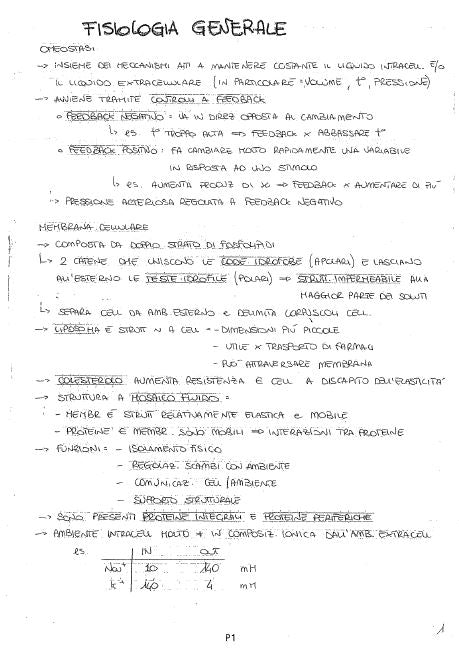 FISIOLOGIA GENERALE
OMEOSTASI
→ INSIEME DEI MECCANISMI ATTI A MANTENERE COSTANTE IL LIQUIDO INTRACELL. E/O
IL LIQUIDO EXTRACELLULARE (IN PARTICOLARE = VOLUME, t°, PRESSIONE)
→ AVVIENE TRAMITE CONTROLLI A FEEDBACK
o FEEDBACK NEGATIVO = VA IN DIREZ OPPOSTA AL CAMBIAMENTO
↳ es. t° TROPPO ALTA => FEEDBACK x ABBASSARE t°
o FEEDBACK POSITIVO: FA CAMBIARE MOLTO RAPIDAMENTE UNA VARIABILE
IN RISPOSTA AD UNO STIMOLO
↳ es. AUMENTA PRODUZ DI => FEEDBACK x AUMENTARE DI PIÙ
→ PRESSIONE ARTERIOSA REGOLATA A FEEDBACK NEGATIVO
MEMBRANA CELLULARE
→ COMPOSTA DA DOPPIO STRATO DI FOSFOLIPIDI
↳ 2 CATENE CHE UNISCONO LE CODE IDROFOBE (APOLARI) E LASCIANO
ALL'ESTERNO LE TESTE IDROFILE (POLARI) => STRUTT. IMPERMEABILE ALLA
MAGGIOR PARTE DEI SOLUTI
↳ SEPARA CELL DA AMB. ESTERNO e DELIMITA CORPUSCOLI CELL.
→ LIPOSOMA E STRUTT N A CELL = - DIMENSIONI PIÙ PICCOLE
- UTILE x TRASPORTO DI FARMACI
- PUÒ ATTRAVERSARE MEMBRANA
→ COLESTEROLO AUMENTA RESISTENZA E CELL A DISCAPITO DELL'ELASTICITÀ
→ STRUTTURA A MOSAICO FLUIDO =
- MEMBR È STRUTT RELATIVAMENTE ELASTICA e MOBILE
- PROTEINE E MEMBR. SONO MOBILI => INTERAZIONI TRA PROTEINE
→ FUNZIONI = - ISOLAMENTO FISICO
- REGOLAZ. SCAMBI CON AMBIENTE
- COMUNICAZ. CELL/AMBIENTE
- SUPPORTO STRUTTURALE
→ SONO PRESENTI PROTEINE INTEGRALI E PROTEINE PERIFERICHE
→ AMBIENTE INTRACELL MOLTO ≠ IN COMPOSIZ. IONICA DALL'AMB. EXTRACELL
es. IN OUT
Na+ 10 140 mM
K+ 140 4 mM
P1
1